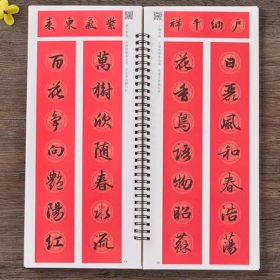 户納千祥
日麗風和春浩蕩
花香鳥語物昭蘇
紫氣東来
萬樹欣随春水流
百花争向艷陽紅